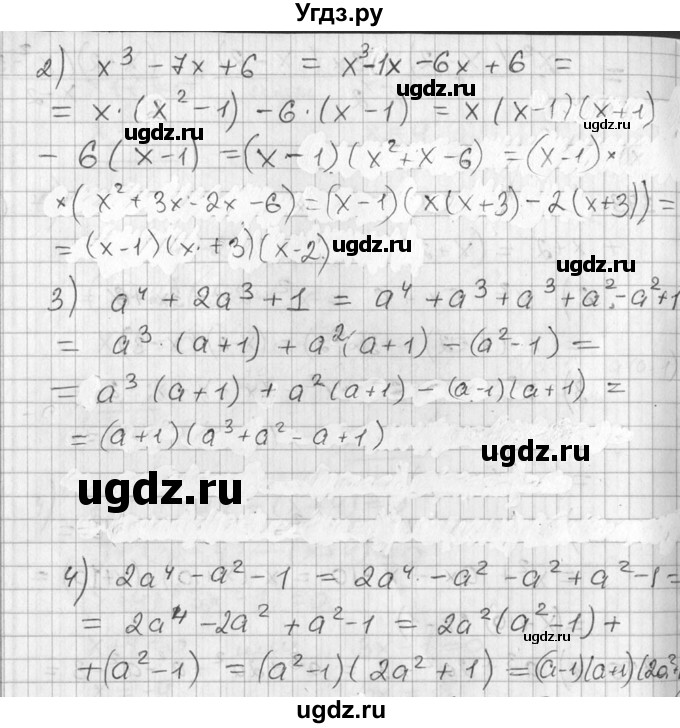 Угдз.ру
2) x³ - 7x + 6 = x³-1x - 6x + 6 =
ugdz.ru
= x · (x² - 1) - 6 · (x - 1) = x (x-1)(x+1)
ugdz.ru ugdz.ru
- 6 (x - 1) = (x - 1) (x² + x - 6) = (x-1) ×
×( x² + 3x - 2x - 6) = (x-1) (x(x+3) - 2(x+3)) =
= (x-1)(x + 3)(x-2)
ugdz.ru ugdz.ru
3) a⁴ + 2a³ + 1 = a⁴ + a³ + a³ + a² - a² + 1
= a³ · (a+1) + a² (a+1) - (a² - 1) =
= a³ (a+1) + a² (a+1) - (a-1)(a+1) =
= (a+1)(a³ + a² - a + 1)
ugdz.ru
ugdz.ru
ugdz.ru
4) 2a⁴ - a² - 1 = 2a⁴ - a² - a² + a² - 1 =
= 2a⁴ - 2a² + a² - 1 = 2a² (a² - 1) +
ugdz.ru
+ (a² - 1) = (a² - 1) (2a² + 1) = (a-1)(a+1)(2a²
ugdz.ru ugdz.ru